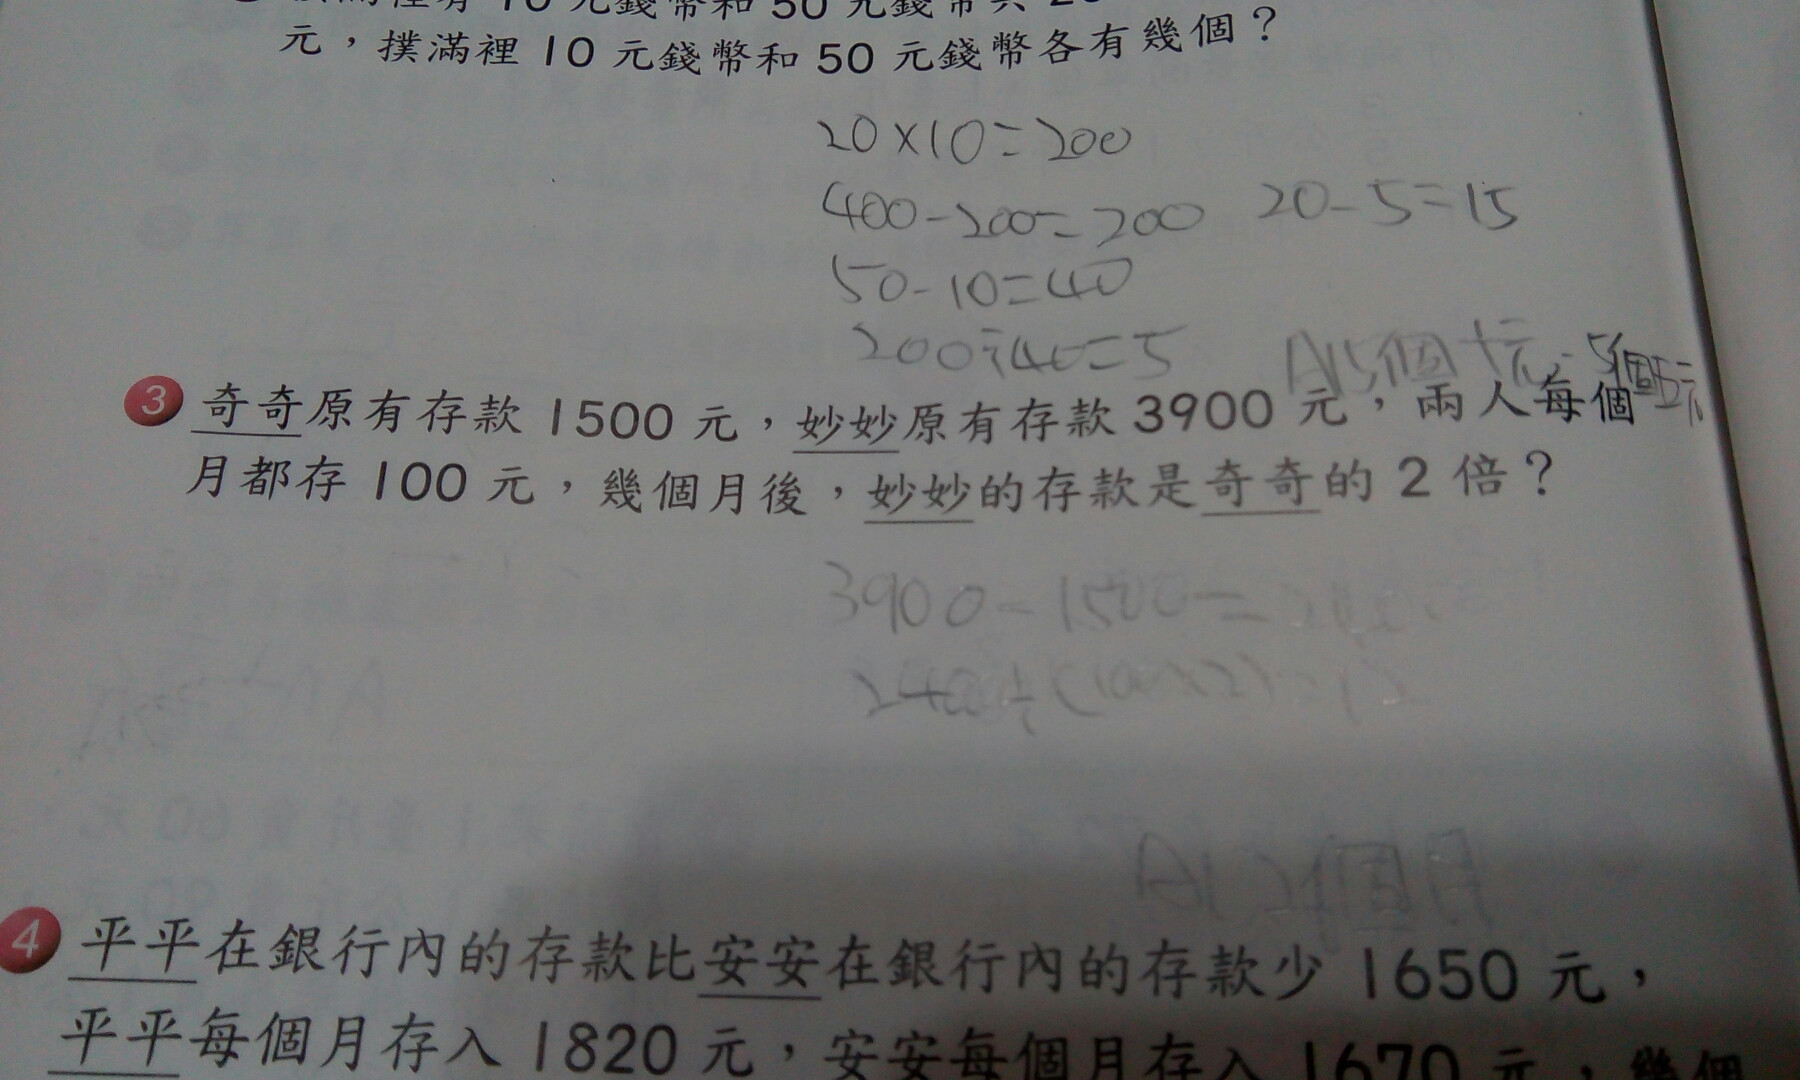 裡有 10 元錢幣和 50 元錢幣共
元，撲滿裡 10 元錢幣和 50 元錢幣各有幾個？
20×10=200
400-200=200 20-5=15
50-10=40
200÷40=5 A15個十元
3 奇奇原有存款 1500 元，妙妙原有存款 3900 元，兩人每個
月都存 100 元，幾個月後，妙妙的存款是奇奇的 2 倍？
3900-1500=
2400÷(100×2)=12
A12個月
4 平平在銀行內的存款比安安在銀行內的存款少 1650 元，
平平每個月存入 1820 元，安安每個月存入 1670 元，幾個